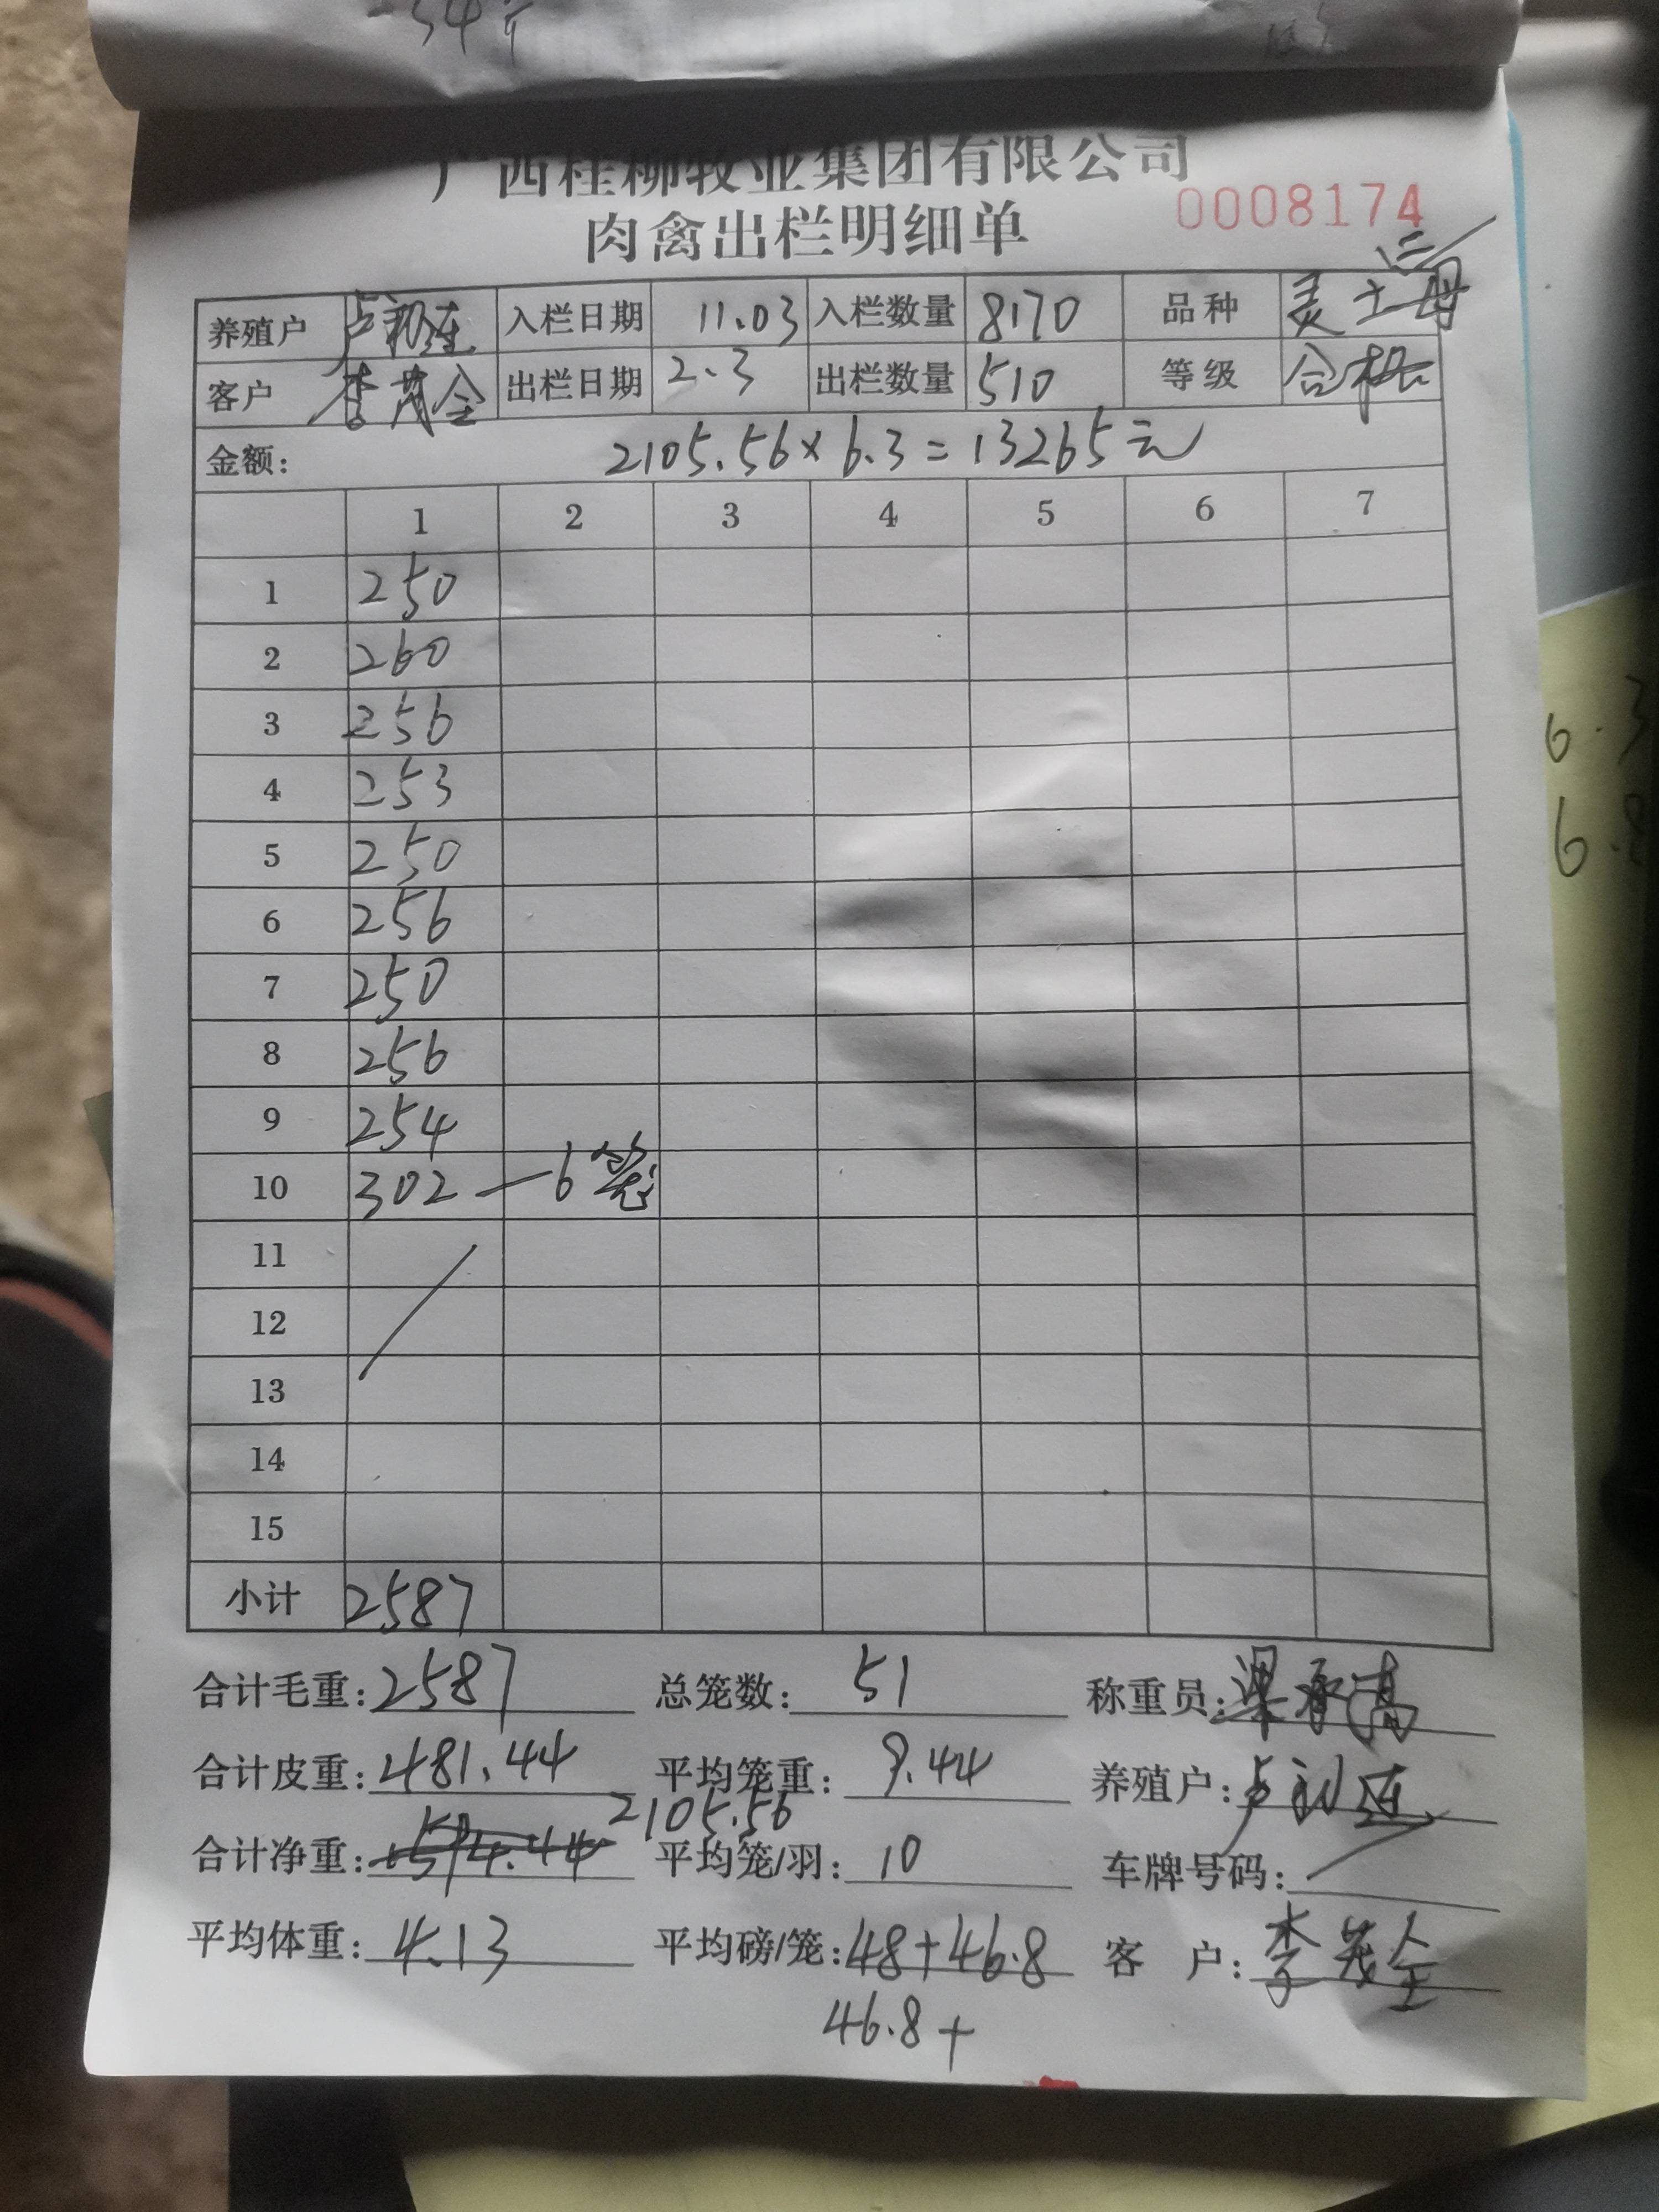 广西桂柳牧业集团有限公司
肉禽出栏明细单
0008174
养殖户 入栏日期 11.03 入栏数量 8170 品种 灵土二母
客户 李茂全 出栏日期 2.3 出栏数量 510 等级 合格
金额: 2105.56×6.3=13265元
1 2 3 4 5 6 7
1 250
2 260
3 256
4 253
5 250
6 256
7 250
8 256
9 254
10 302 — 6笼
11
12
13
14
15
小计 2587
合计毛重: 2587 总笼数: 51 称重员:
合计皮重: 481.44 平均笼重: 9.44 养殖户:
2105.56
合计净重: 平均笼/羽: 10 车牌号码:
平均体重: 4.13 平均磅/笼: 48+46.8 客 户: 李茂全
46.8+
6.3
6.8